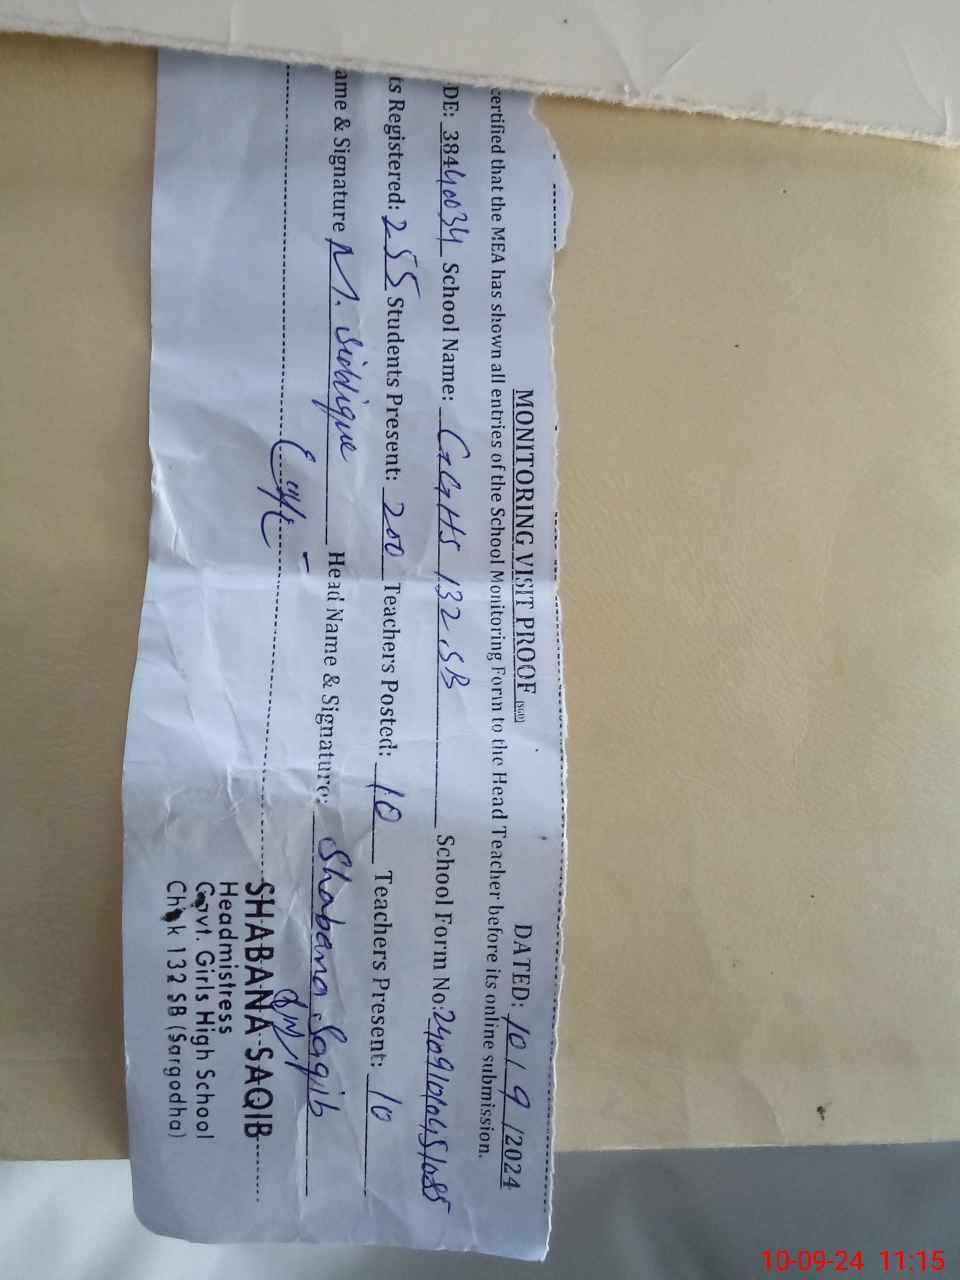 MONITORING VISIT PROOF [SGD]
DATED: 10 / 9 /2024
certified that the MEA has shown all entries of the School Monitoring Form to the Head Teacher before its online submission.
DE: 38440034 School Name: GGHS 132.SB School Form No:
ts Registered: 255 Students Present: 200 Teachers Posted: 10 Teachers Present: 10
ame & Signature M. Siddique Head Name & Signature: Shabana Saqib
SHABANA SAQIB
Headmistress
Govt. Girls High School
Chak 132 SB (Sargodha)
10-09-24 11:15